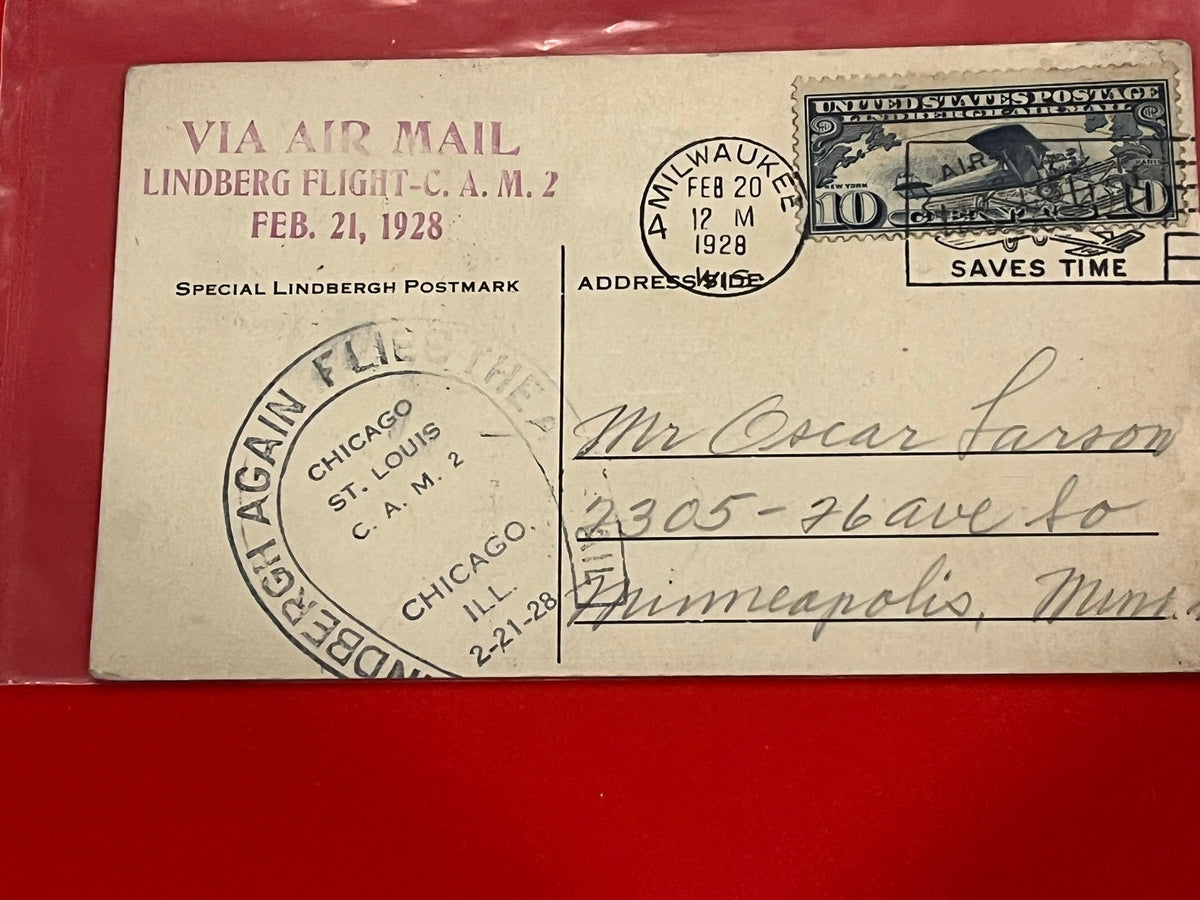 VIA AIR MAIL
LINDBERG FLIGHT-C. A. M. 2
FEB. 21, 1928
SPECIAL LINDBERGH POSTMARK
LINDBERGH AGAIN FLIES THE AIR
CHICAGO
ST. LOUIS
C. A. M. 2
CHICAGO,
ILL.
2-21-28
MILWAUKEE
4
FEB 20
12 M
1928
WIS.
UNITED STATES POSTAGE
LINDBERGH AIR MAIL
NEW YORK
PARIS
10 CENTS 10
AIR
SAVES TIME
ADDRESS SIDE
Mr Oscar Larson
2305-26 ave So
Minneapolis, Minn.